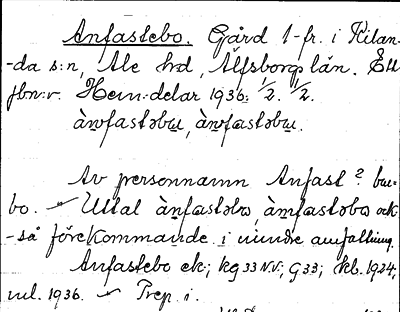 Anfastebo. Gård 1-fr. i Kilan-
-da s:n, Ale hd, Älfsborgs län. Ett
jbn:r. Hem:delar 1936: 1/2. 1/2.
àn̰fastəbɯ, àn̰fastəbɯ.
Av personnamn Anfast? bu-
bo. Uttal àn̰fastəbɷ, àm̰fastəbɷ ock-
-så förekommande i mindre omfattning.
Anfastebo ek; kg 33 N.V.; G 33; kb. 1924;
ml. 1936. Trep. i.